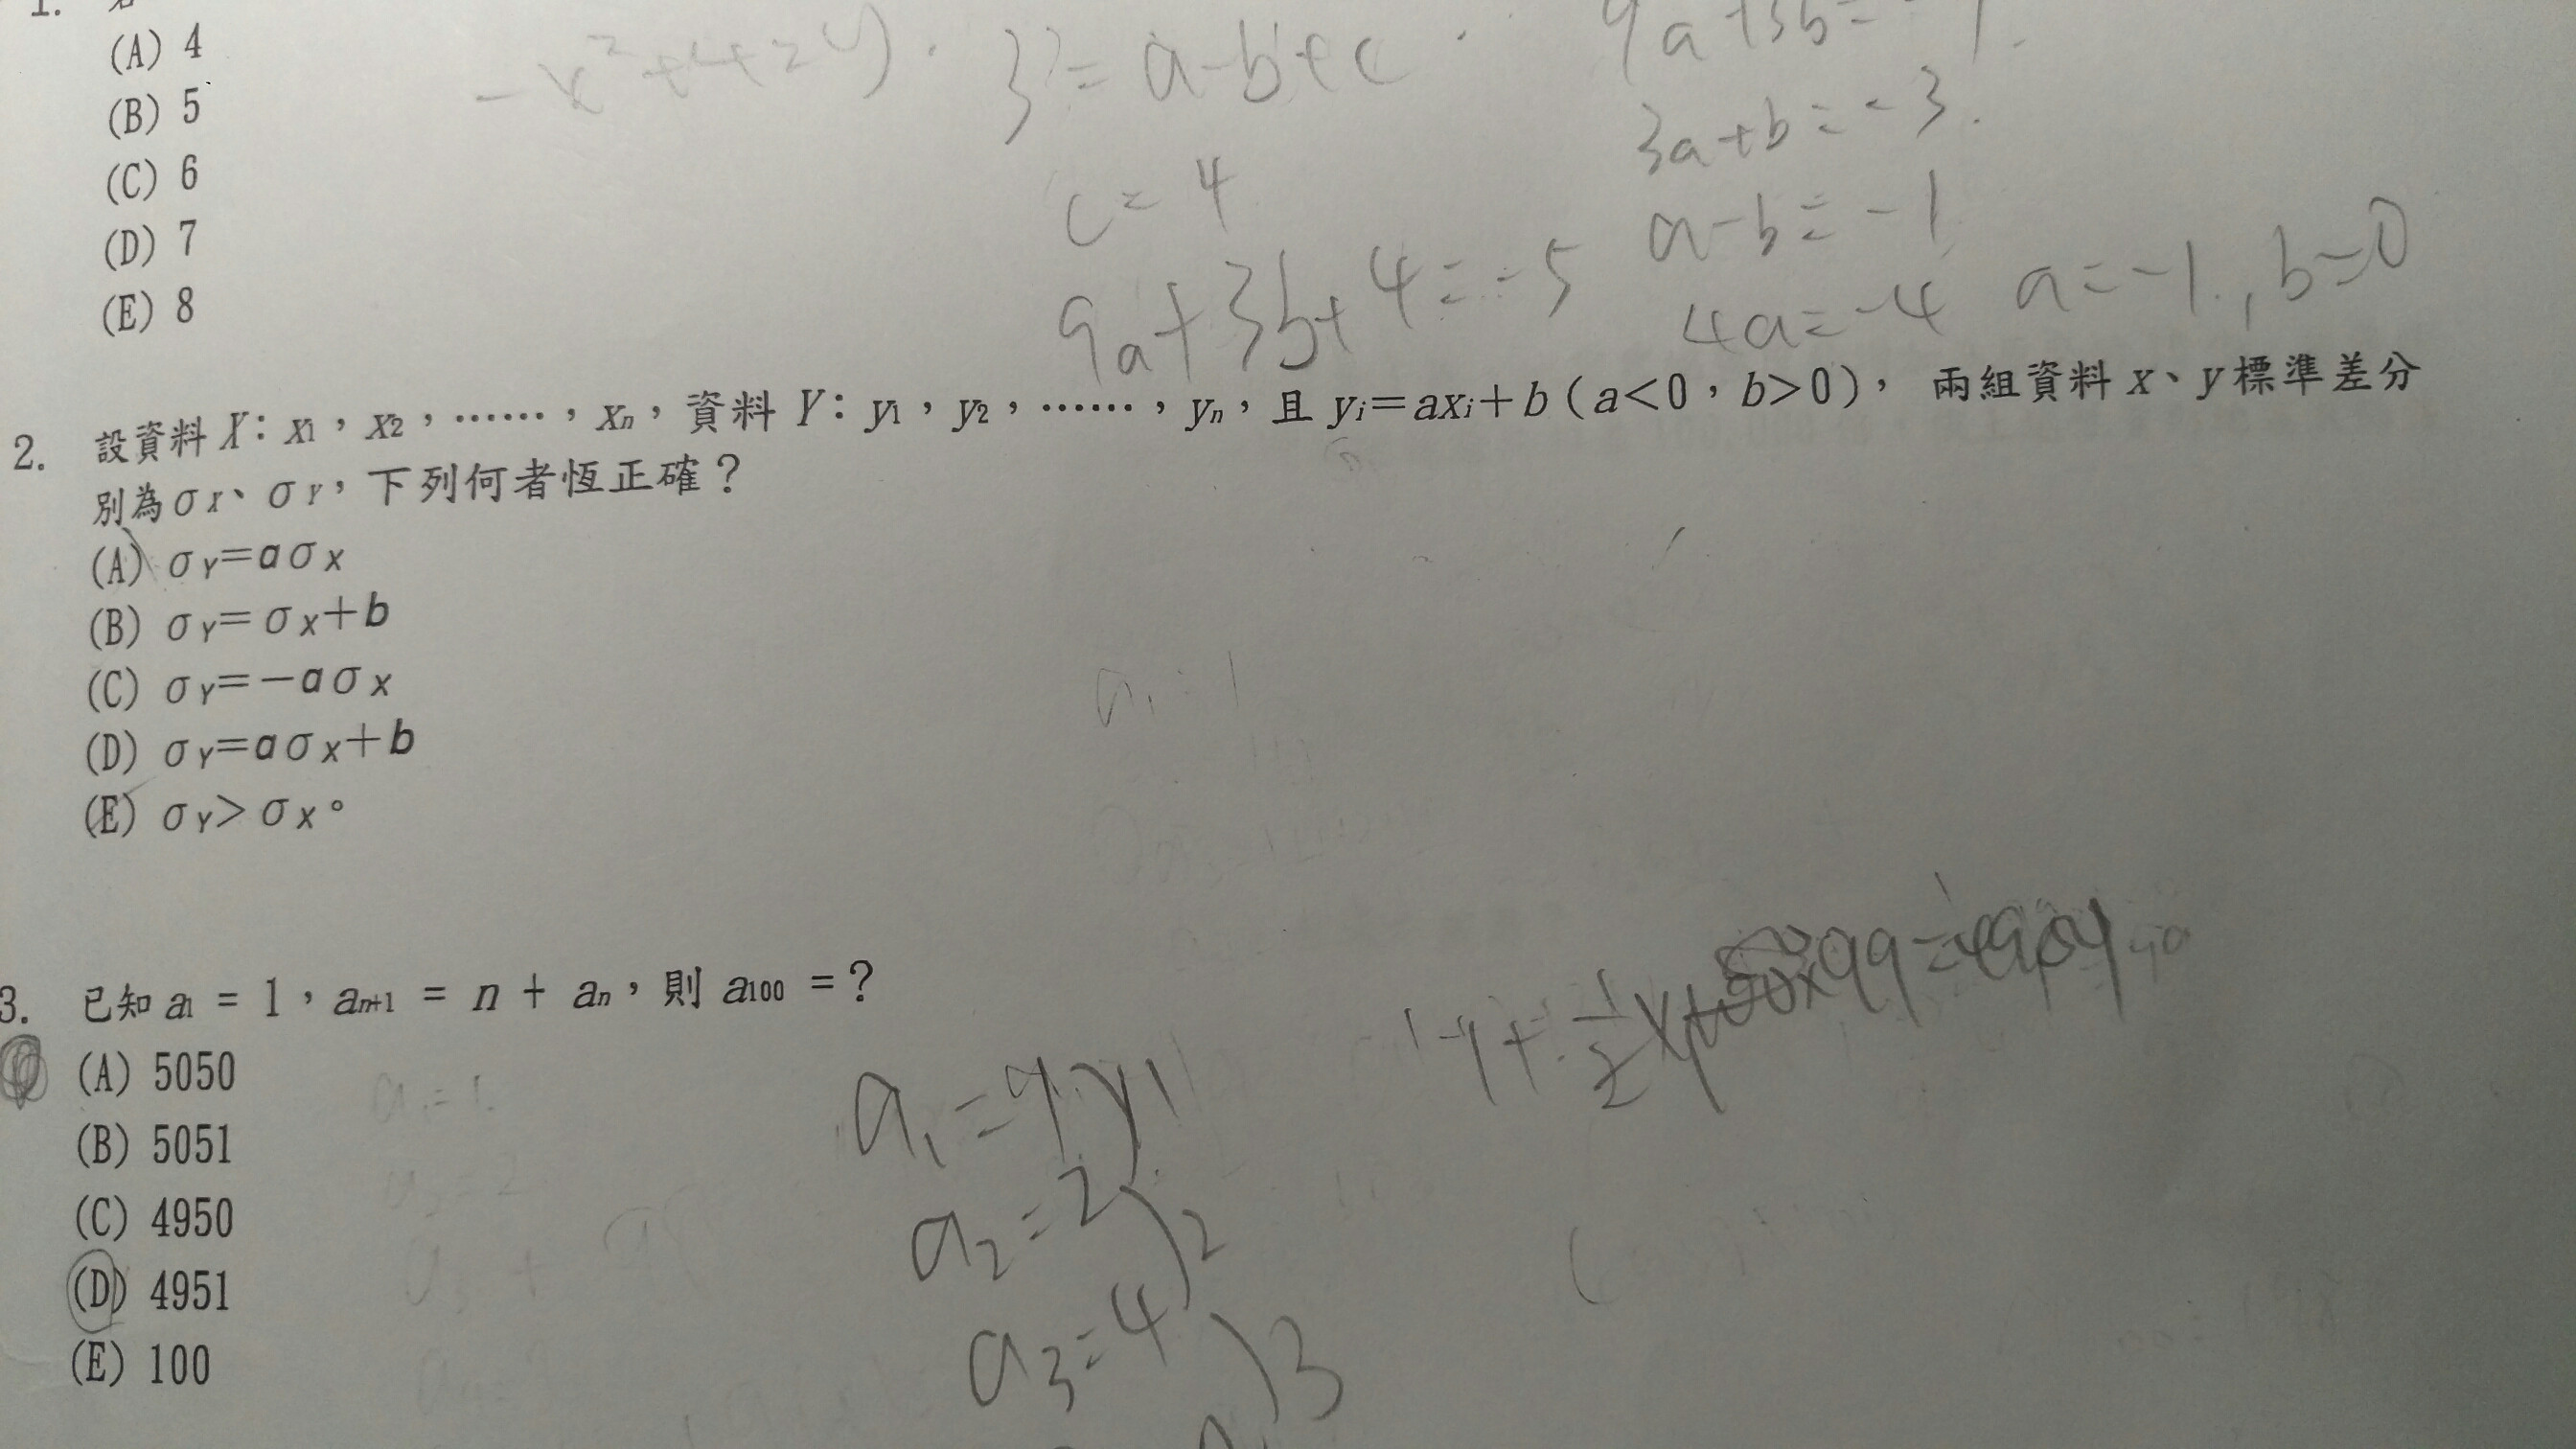 1.
(A) 4
(B) 5
(C) 6
(D) 7
(E) 8
3=a-b+c
c=4
9a+3b+4=-5
3a+b=-3
a-b=-1
4a=-4 a=-1, b=0
2. 設資料 X: x1, x2, ……, xn, 資料 Y: y1, y2, ……, yn, 且 yi=axi+b (a<0, b>0), 兩組資料 x、y 標準差分
別為σX、σY, 下列何者恆正確?
(A) σY=aσX
(B) σY=σX+b
(C) σY=-aσX
(D) σY=aσX+b
(E) σY>σX。
a1=1
3. 已知 a1 = 1, an+1 = n + an, 則 a100 =?
(A) 5050
(B) 5051
(C) 4950
(D) 4951
(E) 100
a1=
a2=2
a3=4
1
2
3